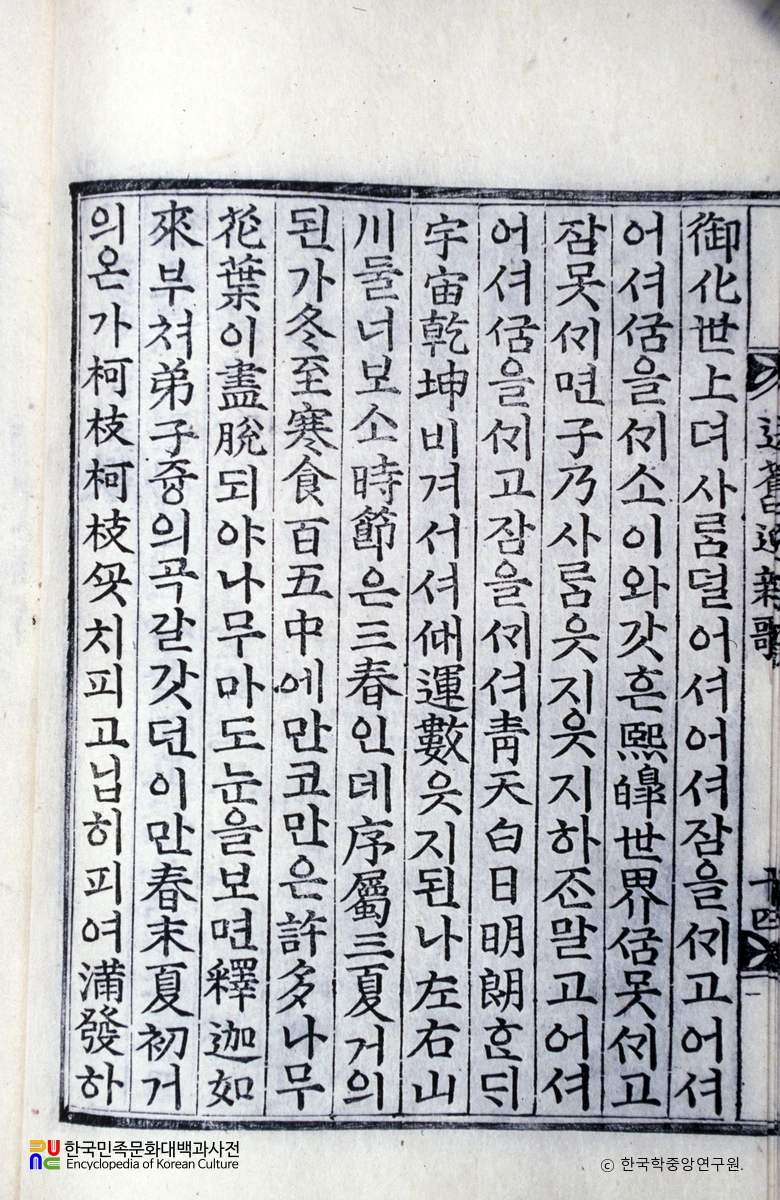 送舊迎新歌 十四
御化世上뎌사ᄅᆞᆷ덜어셔어셔잠을ᄭᆡ고어셔
어셔ᄭᅮᆷ을ᄭᆡ소이와갓흔熙皥世界ᄭᅮᆷ못ᄭᆡ고
잠못ᄭᆡ면子乃사ᄅᆞᆷ웃지웃지하ᄌᆞᆫ말고어셔
어셔ᄭᅮᆷ을ᄭᆡ고잠을ᄭᆡ셔靑天白日明朗ᄒᆞᆫᄃᆡ
宇宙乾坤비겨서셔ᄯᅢ運數웃지된나左右山
川둘너보소時節은三春인데序屬三夏거의
된가冬至寒食百五中에만코만은許多나무
花葉이盡脫되야나무마도눈을보면釋迦如
來부쳐弟子즁의곡갈갓던이만春末夏初거
의온가柯枝柯枝ᄭᅩᆺ치피고닙히피여滿發하
한국민족문화대백과사전
Encyclopedia of Korean Culture
ⓒ 한국학중앙연구원.